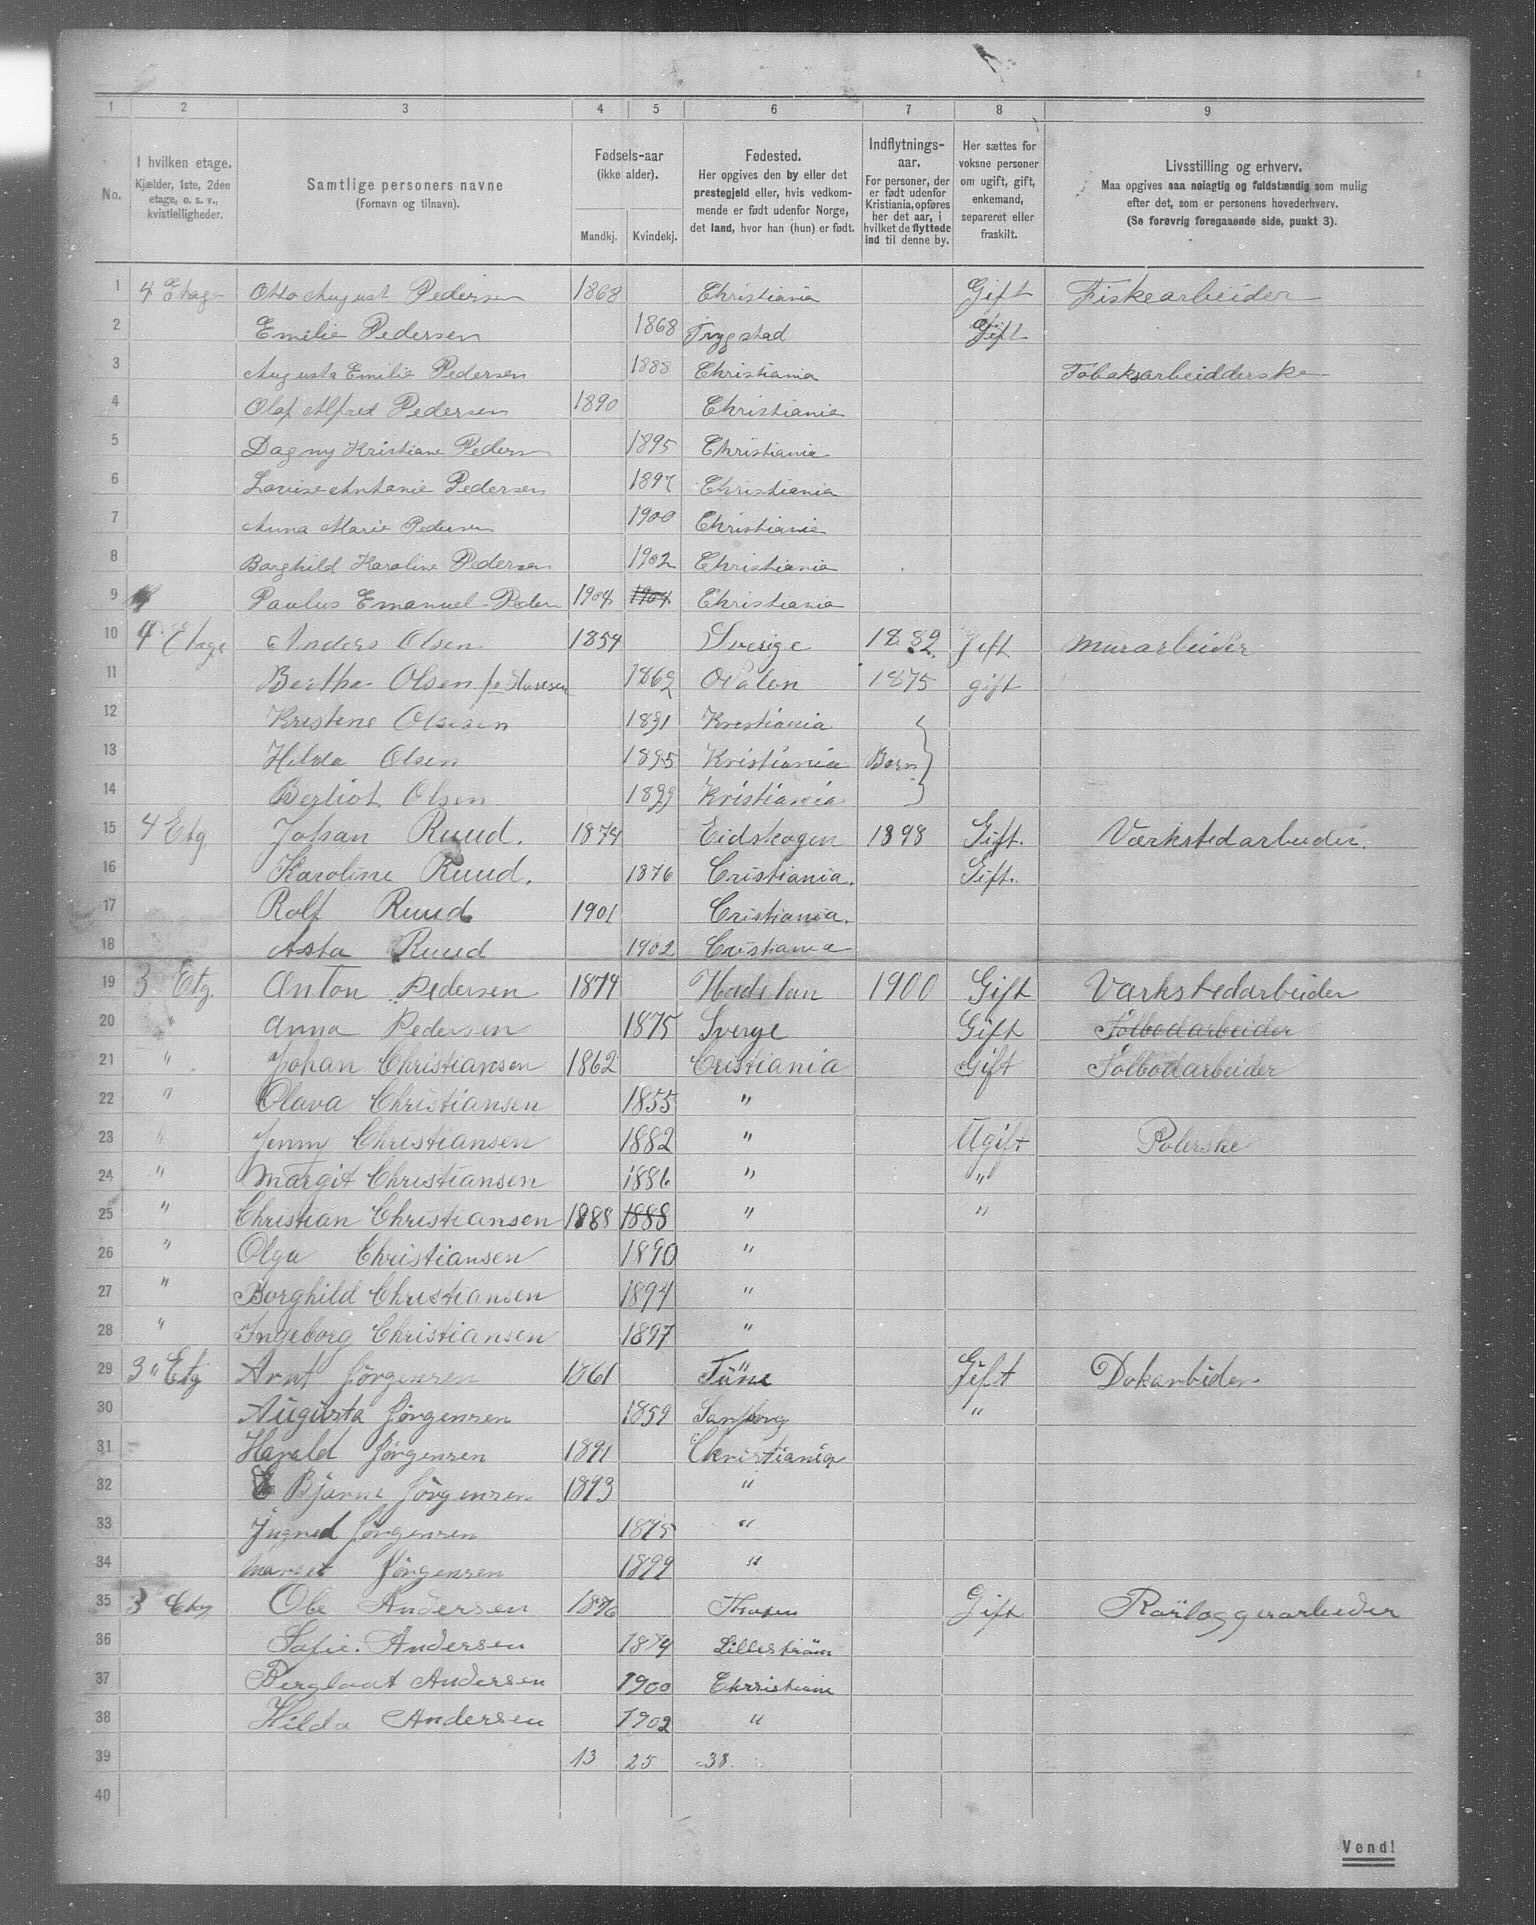 1 2 3 4 5 6 7 8 9
No. I hvilken etage. Kjælder, 1ste, 2den etage, o. s. v., kvistleiligheder. Samtlige personers navne (Fornavn og tilnavn). Fødsels-aar (ikke alder). Mandkj. Kvindekj. Fødested. Her opgives den by eller det prestegjeld eller, hvis vedkommende er født udenfor Norge, det land, hvor han (hun) er født. Indflytnings-aar. For personer, der er født udenfor Kristiania, opføres her det aar, i hvilket de flyttede ind til denne by. Her sættes for voksne personer om ugift, gift, enkemand, separeret eller fraskilt. Livsstilling og erhverv. Maa opgives saa nøiagtig og fuldstændig som mulig efter det, som er personens hovederhverv. (Se forøvrig foregaaende side, punkt 3).
1 4 Etage Otto August Pedersen 1868 Christiania Gift Fiskearbeider
2 Emilie Pedersen 1868 Trygstad Gift
3 Augusta Emilie Pedersen 1888 Christiania Tobaksarbeidderske
4 Olaf Alfred Pedersen 1890 Christiania
5 Dagny Kristiane Pedersn 1895 Christiania
6 Lovise Antonie Pedersen 1897 Christiania
7 Anna Marie Pedersen 1900 Christiania
8 Borghild Karoline Pedersen 1902 Christiania
9 Paulus Emanuel Peder 1904 1904 Christiania
10 4 Etage Anders Olsen 1854 Sverige 1882 Gift Murarbeider
11 Bertha Olsen 1862 1875 gift
12 Kristine Olsesen 1891 Krestiania
13 Hilda Olsen 1895 Kristiania Børn
14 Bergliot Olsen 1899 Kristiania
15 4 Etg Johan Ruud. 1874 Eidskogen 1898 Gift. Værkstedarbeider.
16 Karoline Ruud. 1876 Cristiania. Gift.
17 Rolf Ruud 1901 Cristiania.
18 Asta Ruud 1902 Cristiania
19 3 Etg. Anton Pedersen 1874 1900 Gift Værkstedarbeider
20 " Anna Pedersen 1875 Sverge Gift Tolbodarbeider
21 " Johan Christiansen 1862 Cristiania Gift Tolbodarbeider
22 " Olava Christiansen 1855 "
23 " Jenny Christiansen 1882 " Ugift Polerske
24 " Margit Christiansen 1886 " "
25 " Christian Christiansen 1888 1888 " "
26 " Olga Christiansen 1890 "
27 " Borghild Christiansen 1894 "
28 " Ingeborg Christiansen 1897 "
29 3 " Etg Arnt Jörgensen 1861 Tüne Gift Dokarbider
30 Augusta Jörgensen 1859 "
31 Harald Jörgensen 1891 Christiania
32 Bjarne Jörgensen 1893 "
33 Jngred Jörgensen 1895 "
34 Marget Jörgensen 1899 "
35 3 Etag Ole Andersen 1876 Gift Rørloggerarbeider
36 Sofie. Andersen 1874 Lillestrøm
37 Andersen 1900 Christiania
38 Hilda Andersen 1902 "
39 13 25 38.
40
Vend!